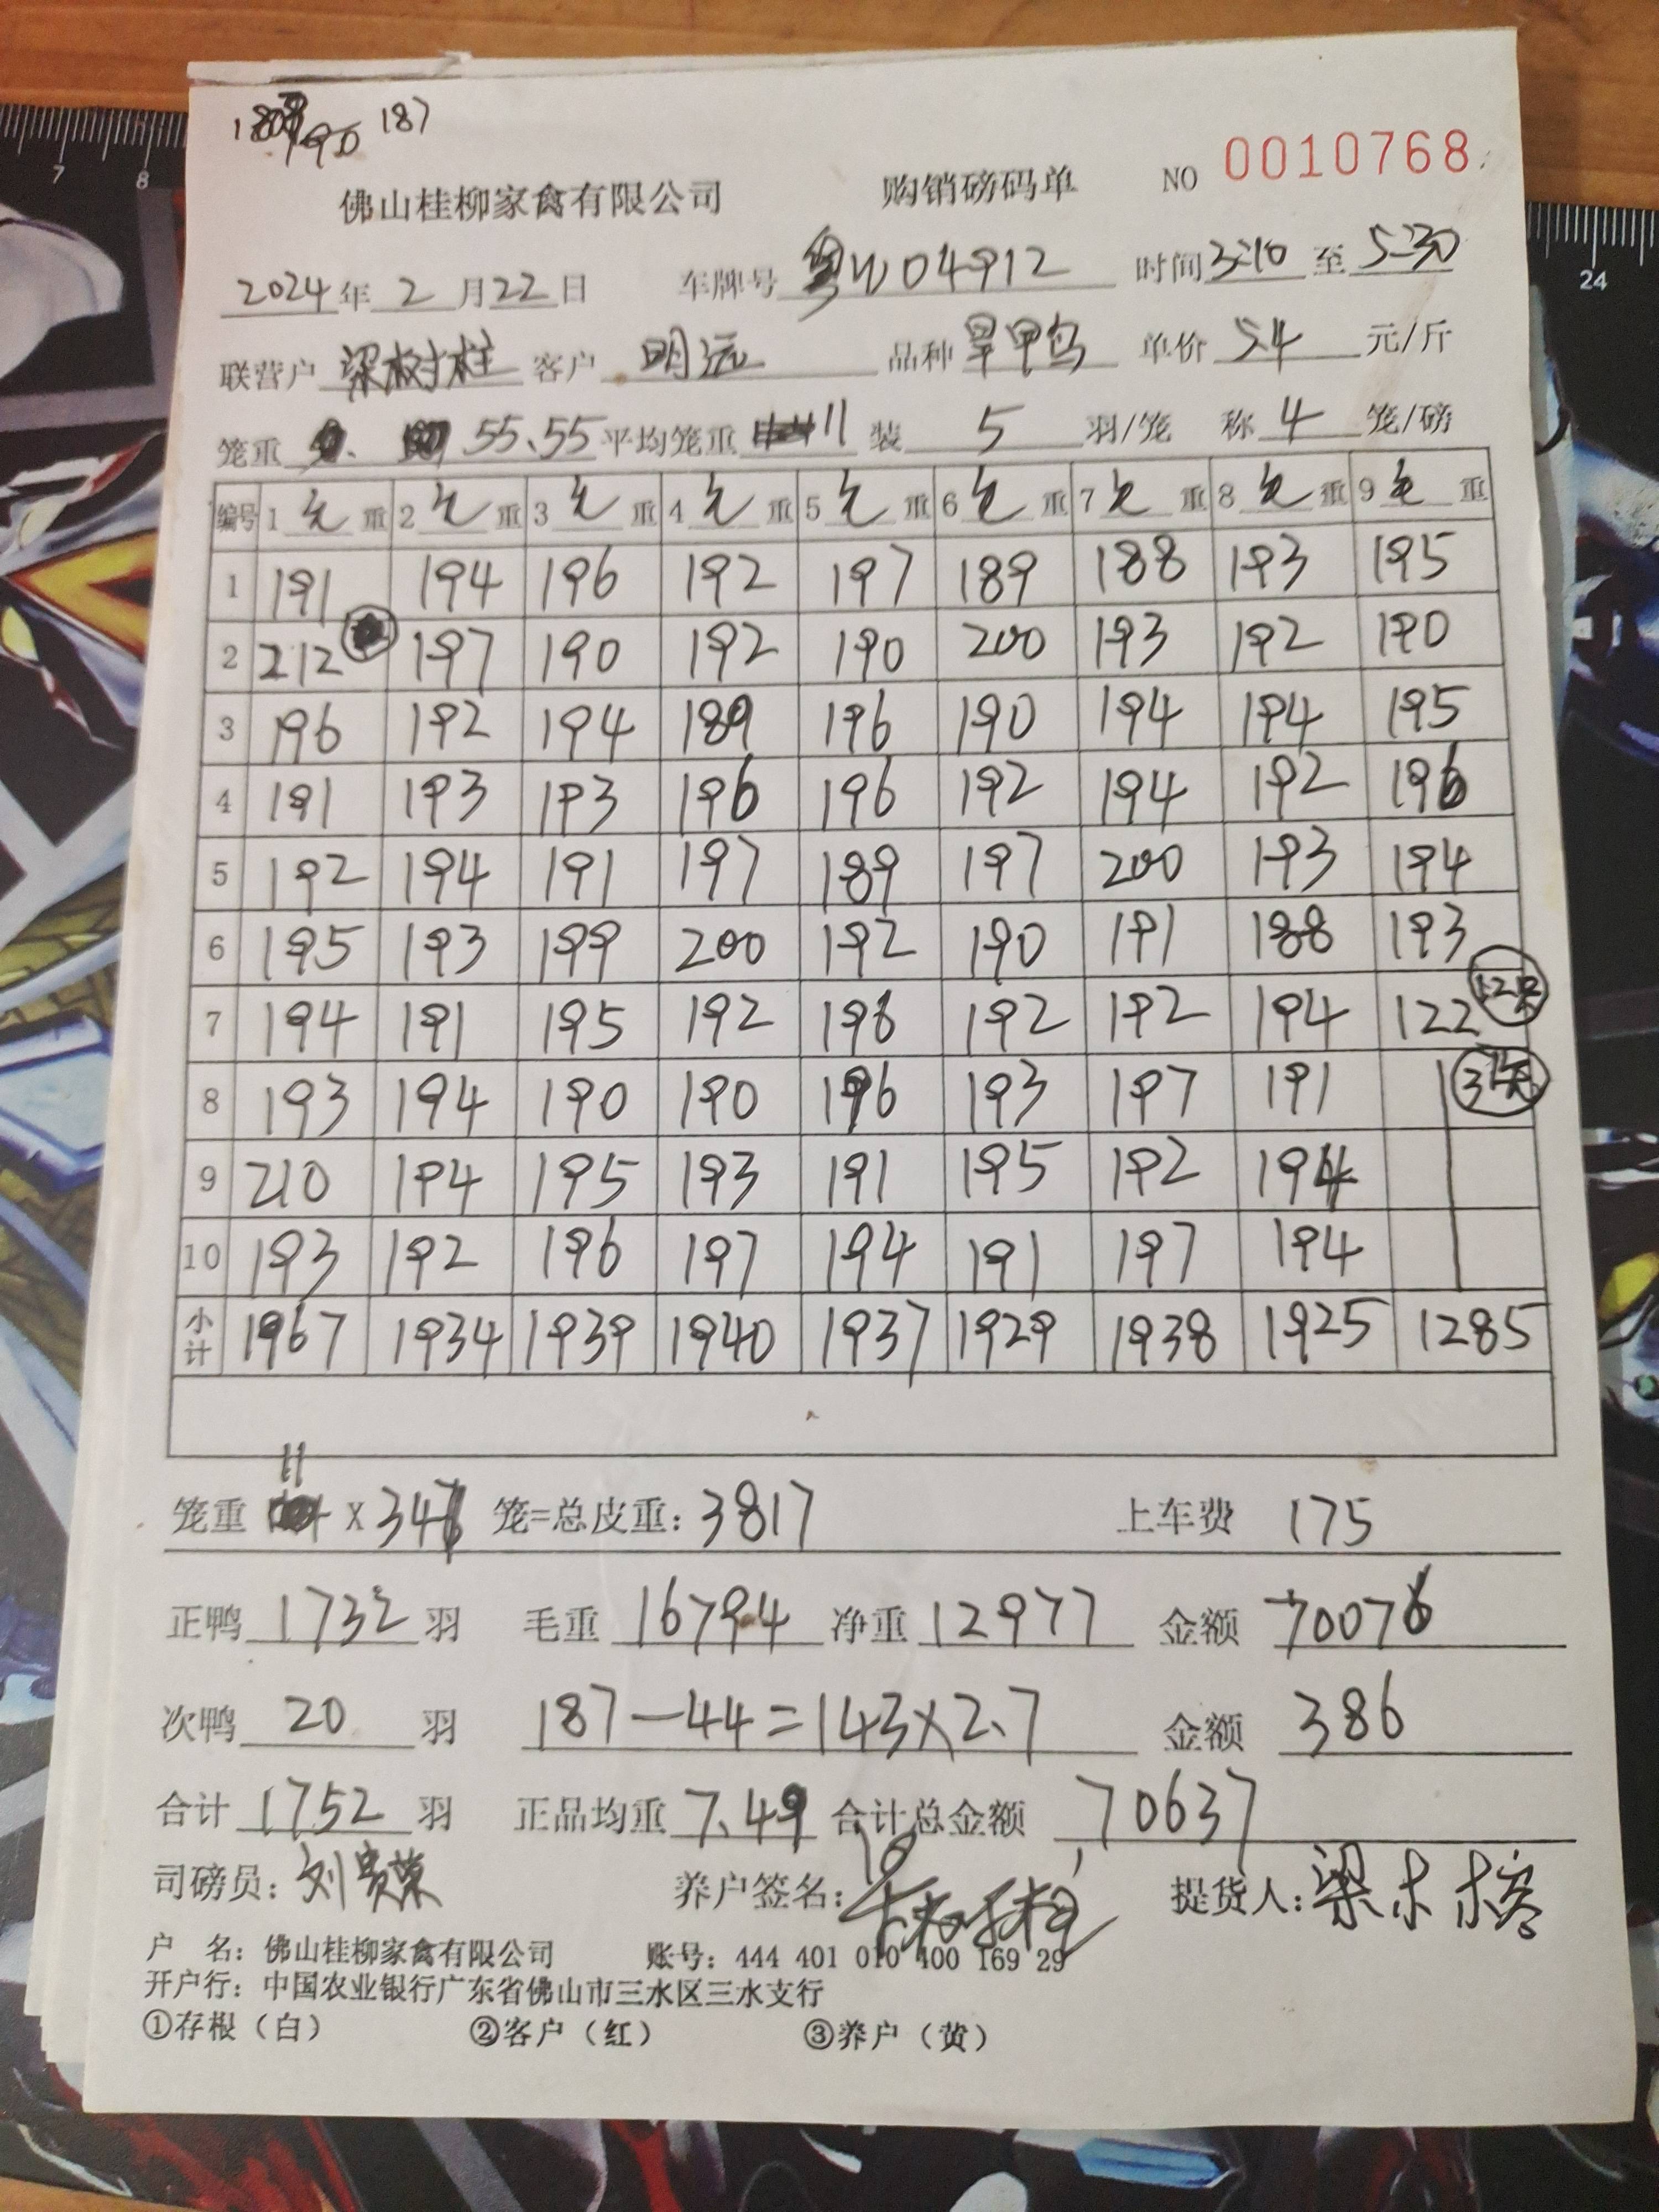 190 187
佛山桂柳家禽有限公司 购销磅码单 NO 0010768
2024年2月22日 车牌号 粤W04912 时间 3:10 至 5:30
联营户 梁树柱 客户 明远 品种 旱甲鸟 单价 54 元/斤
笼重 55.55 平均笼重 11 装 5 羽/笼 称 4 笼/磅
编号 1 毛 重 2 毛 重 3 毛 重 4 毛 重 5 毛 重 6 毛 重 7 毛 重 8 毛 重 9 毛 重
1 191 194 196 192 197 189 188 193 195
2 212 197 190 192 190 200 193 192 190
3 196 192 194 189 196 190 194 194 195
4 191 193 193 196 196 192 194 192 196
5 192 194 191 197 189 197 200 193 194
6 195 193 199 200 192 190 191 188 193
7 194 191 195 192 196 192 192 194 122 12只
8 193 194 190 190 196 193 197 191
9 210 194 195 193 191 195 192 194
10 193 192 196 197 194 191 197 194
小计 1967 1934 1939 1940 1937 1929 1938 1925 1285
笼重 11 X 347 笼=总皮重: 3817 上车费 175
正鸭 1732 羽 毛重 16794 净重 12977 金额 70076
次鸭 20 羽 187-44=143×2.7 金额 386
合计 1752 羽 正品均重 7.49 合计总金额 70637
司磅员: 刘贵荣 养户签名: 提货人: 梁木榕
户 名: 佛山桂柳家禽有限公司 账号: 444 401 010 400 169 29
开户行: 中国农业银行广东省佛山市三水区三水支行
①存根（白） ②客户（红） ③养户（黄）